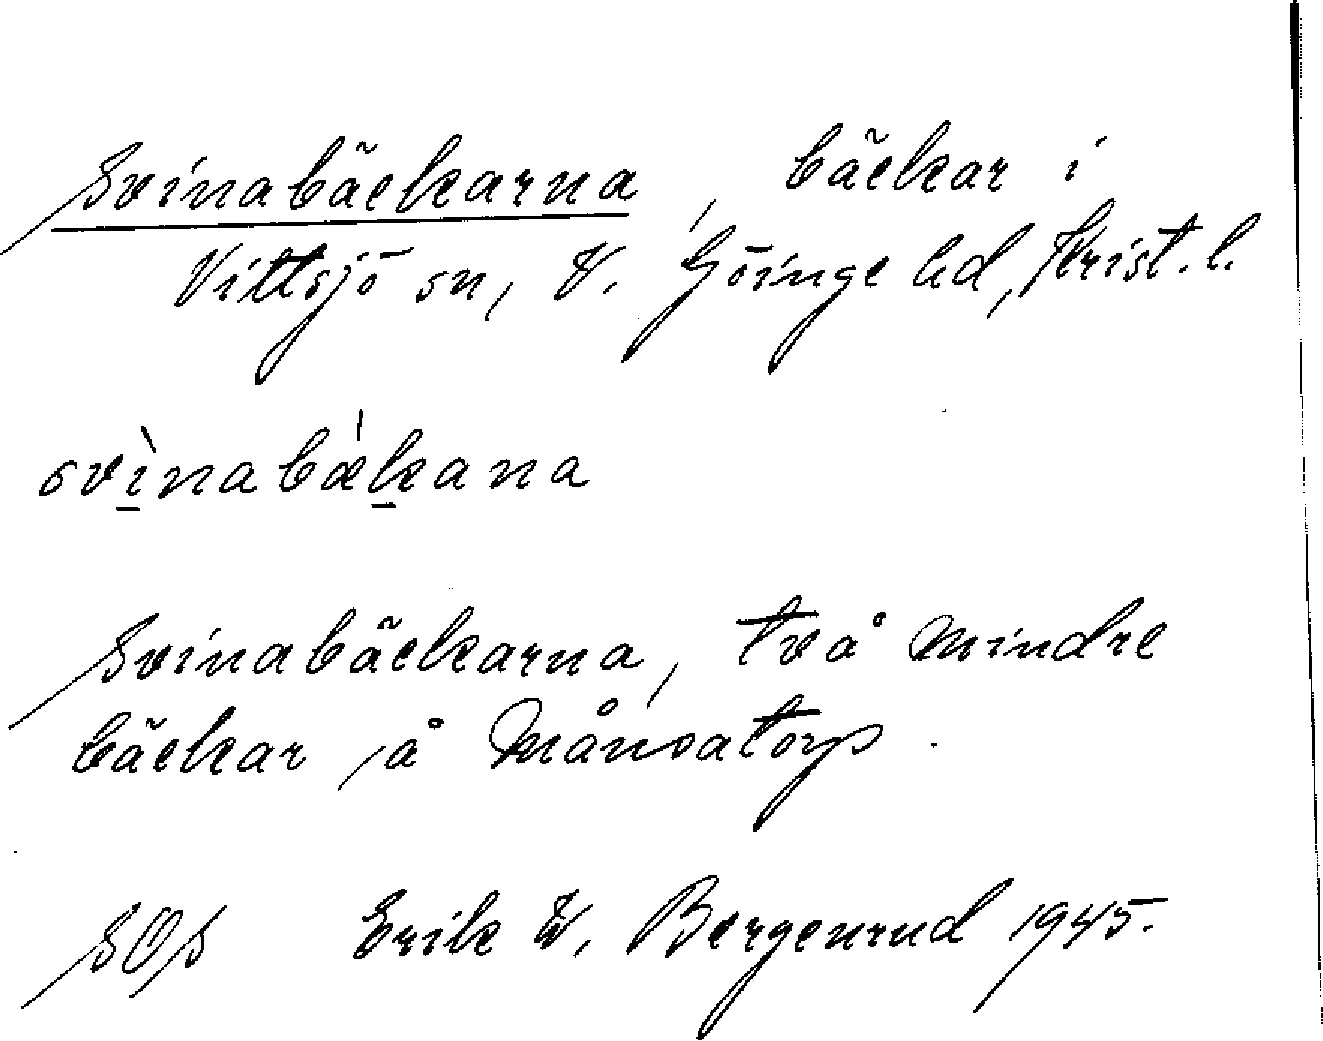 Svinabäckarna, bäckar i
Vittsjö sn, V. Göinge hd, Krist. l.
svìnabækana
Svinabäckarna, två mindre
bäckar å Månsatorp.
SOS Erik W. Bergenrud 1945.